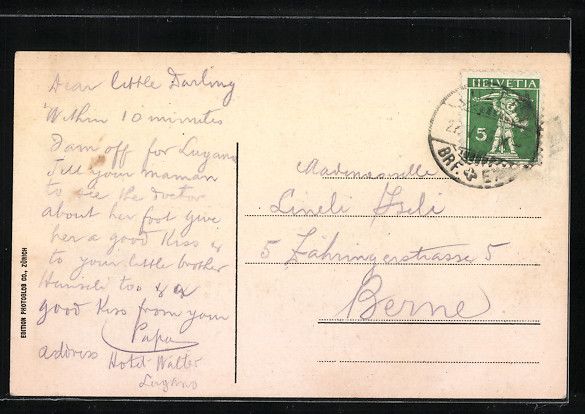 Dear little Darling
Within 10 minutes
I am off for Lugano
Tell your maman
to see the doctor
about her foot give
her a good Kiss &
to your little brother
Hanseli too & a
good Kiss from your
Papa
address Hotel Walter
Lugano
HELVETIA
5
BRF.
Mademoiselle
Lineli Iseli
5 Zähringerstrasse 5
Berne
EDITION PHOTOGLOB CO., ZÜRICH